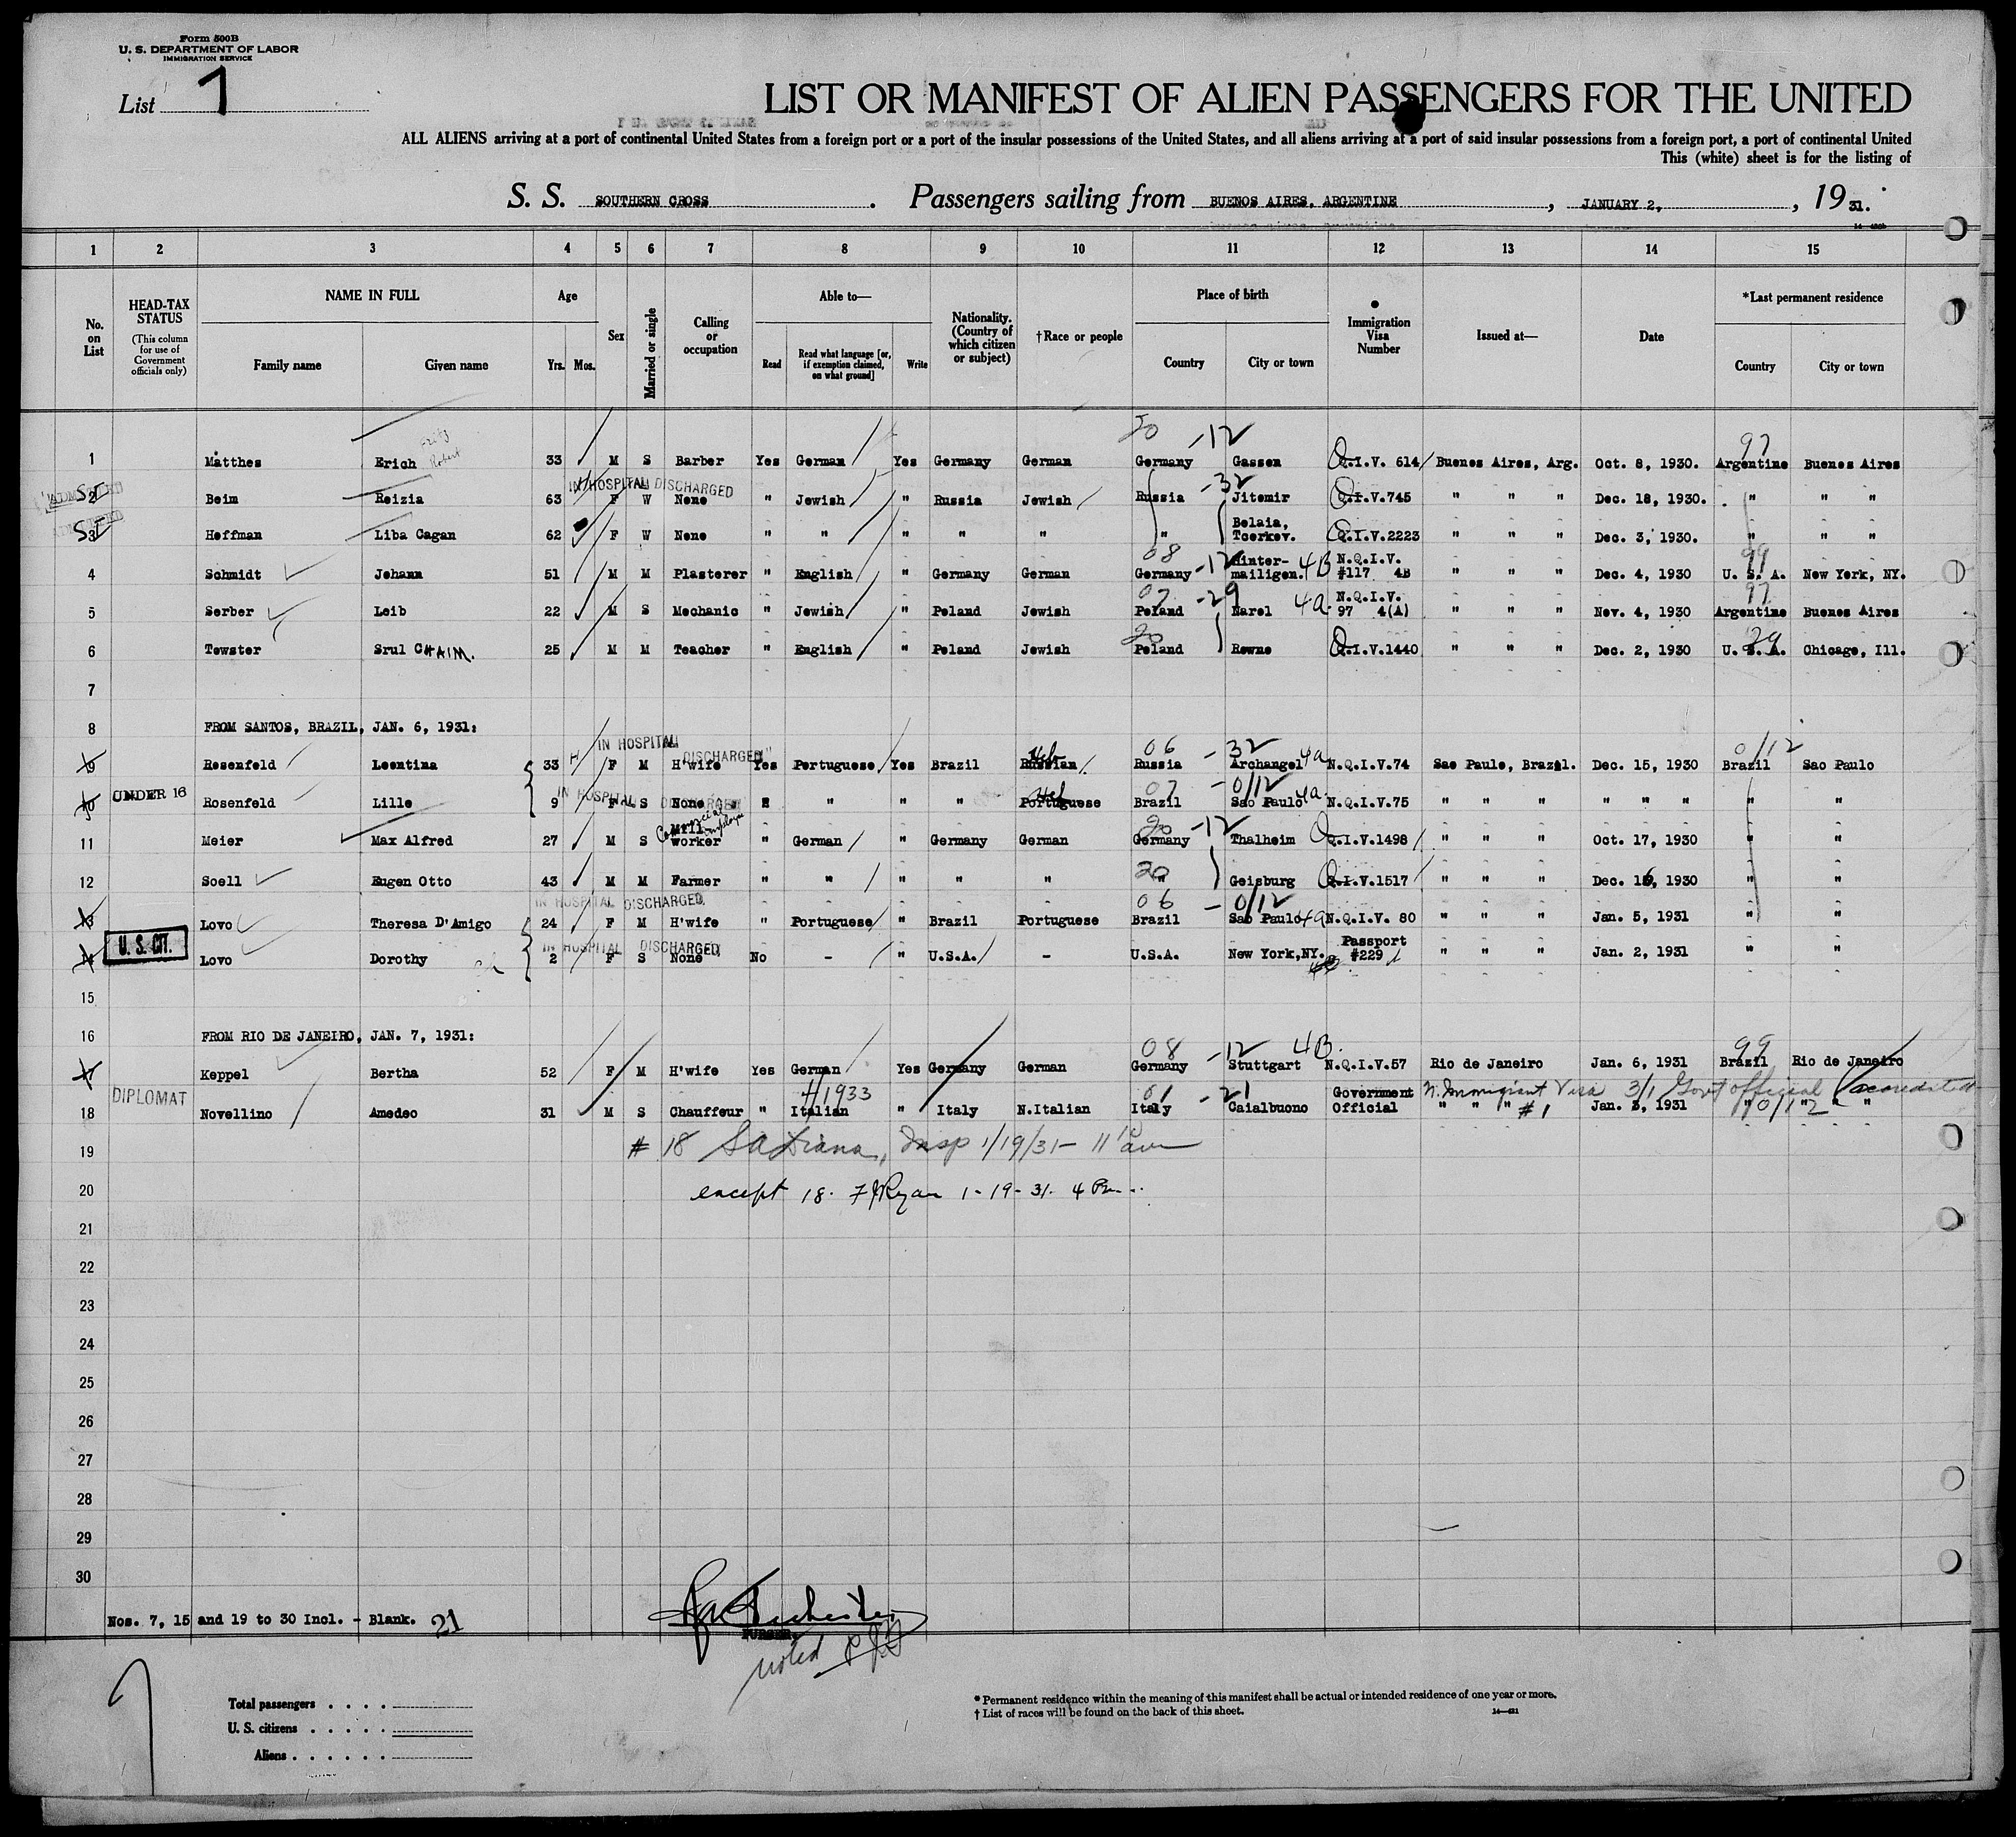 Form 500B
U. S. DEPARTMENT OF LABOR
IMMIGRATION SERVICE
List 7
LIST OR MANIFEST OF ALIEN PASSENGERS FOR THE UNITED
ALL ALIENS arriving at a port of continental United States from a foreign port or a port of the insular possessions of the United States, and all aliens arriving at a port of said insular possessions from a foreign port, a port of continental United
This (white) sheet is for the listing of
S. S. SOUTHERN CROSS . Passengers sailing from BUENOS AIRES, ARGENTINE , JANUARY 2, , 19 31.
1 2 3 4 5 6 7 8 9 10 11 12 13 14 15
No. on List
HEAD-TAX STATUS (This column for use of Government officials only)
NAME IN FULL Family name Given name
Age Yrs. Mos.
Sex
Married or single
Calling or occupation
Able to— Read Read what language [or, if exemption claimed, on what ground] Write
Nationality. (Country of which citizen or subject)
†Race or people
Place of birth Country City or town
Immigration Visa Number
Issued at—
Date
*Last permanent residence Country City or town
20 -12 97
1 Matthes Erich Fritz Robert 33 M S Barber Yes German Yes Germany German Germany Gassen Q.I.V. 614 Buenos Aires, Arg. Oct. 8, 1930. Argentine Buenos Aires
IN HOSPITAL DISCHARGED -32
2 Beim Reizia 63 F W None " Jewish " Russia Jewish Russia Jitomir Q.I.V.745 " " " Dec. 18, 1930. " " "
3 Hoffman Liba Cagan 62 F W None " " " " " " Belaia, Tcerkov. Q.I.V.2223 " " " Dec. 3, 1930. " " "
08 -12 4B 99
4 Schmidt Johann 51 M M Plasterer " English " Germany German Germany Hinter-mailigen. N.Q.I.V. #117 4B " " " Dec. 4, 1930 U. S. A. New York, NY.
07 -29 4a 97
5 Serber Leib 22 M S Mechanic " Jewish " Poland Jewish Poland Narol N.Q.I.V. 97 4(A) " " " Nov. 4, 1930 Argentine Buenos Aires
20 29
6 Tewster Srul CHAIM. 25 M M Teacher " English " Poland Jewish Poland Rowne Q.I.V.1440 " " " Dec. 2, 1930 U. S. A. Chicago, Ill.
7
8 FROM SANTOS, BRAZIL, JAN. 6, 1931:
IN HOSPITAL DISCHARGED Heb 06 -32 4a 0/12
9 Rosenfeld Leontina 33 F M H'wife Yes Portuguese Yes Brazil Russian Russia Archangel N.Q.I.V.74 Sao Paulo, Brazil. Dec. 15, 1930 Brazil Sao Paulo
UNDER 16 IN HOSPITAL DISCHARGED Heb 07 -0/12 4a
10 Rosenfeld Lille 9 F S None " " " " Portuguese Brazil Sao Paulo N.Q.I.V.75 " " " " " " " "
Commercial employee 20 -12
11 Meier Max Alfred 27 M S Mill worker " German " Germany German Germany Thalheim Q.I.V.1498 " " " Oct. 17, 1930 " "
20
12 Soell Eugen Otto 43 M M Farmer " " " " " " Geisburg Q.I.V.1517 " " " Dec. 16, 1930 " "
IN HOSPITAL DISCHARGED 06 -0/12 4a
13 Lovo Theresa D'Amigo 24 F M H'wife " Portuguese " Brazil Portuguese Brazil Sao Paulo N.Q.I.V. 80 " " " Jan. 5, 1931 " "
U. S. CIT. IN HOSPITAL DISCHARGED
14 Lovo Dorothy 2 F S None No - " U.S.A. - U.S.A. New York,NY. Passport #229 " " " Jan. 2, 1931 " "
15
16 FROM RIO DE JANEIRO, JAN. 7, 1931:
08 -12 4B. 99
17 Keppel Bertha 52 F M H'wife Yes German Yes Germany German Germany Stuttgart N.Q.I.V.57 Rio de Janeiro Jan. 6, 1931 Brazil Rio de Janeiro
DIPLOMAT H1933 01 -21 N. Immigrant Visa 3/1 Govt official accredited
18 Novellino Amedeo 31 M S Chauffeur " Italian " Italy N.Italian Italy Caialbuono Government Official " " " #1 Jan. 3, 1931 " 0/12 " " "
19 # 18 Insp 1/19/31 - 11 am
20 except 18. F J Ryan 1-19-31. 4 Pm.
21
22
23
24
25
26
27
28
29
30
Nos. 7, 15 and 19 to 30 Incl. - Blank. 21
PURSER.
noted
Total passengers . . . .
U. S. citizens . . . . .
Aliens . . . . . .
* Permanent residence within the meaning of this manifest shall be actual or intended residence of one year or more.
† List of races will be found on the back of this sheet.
14—421